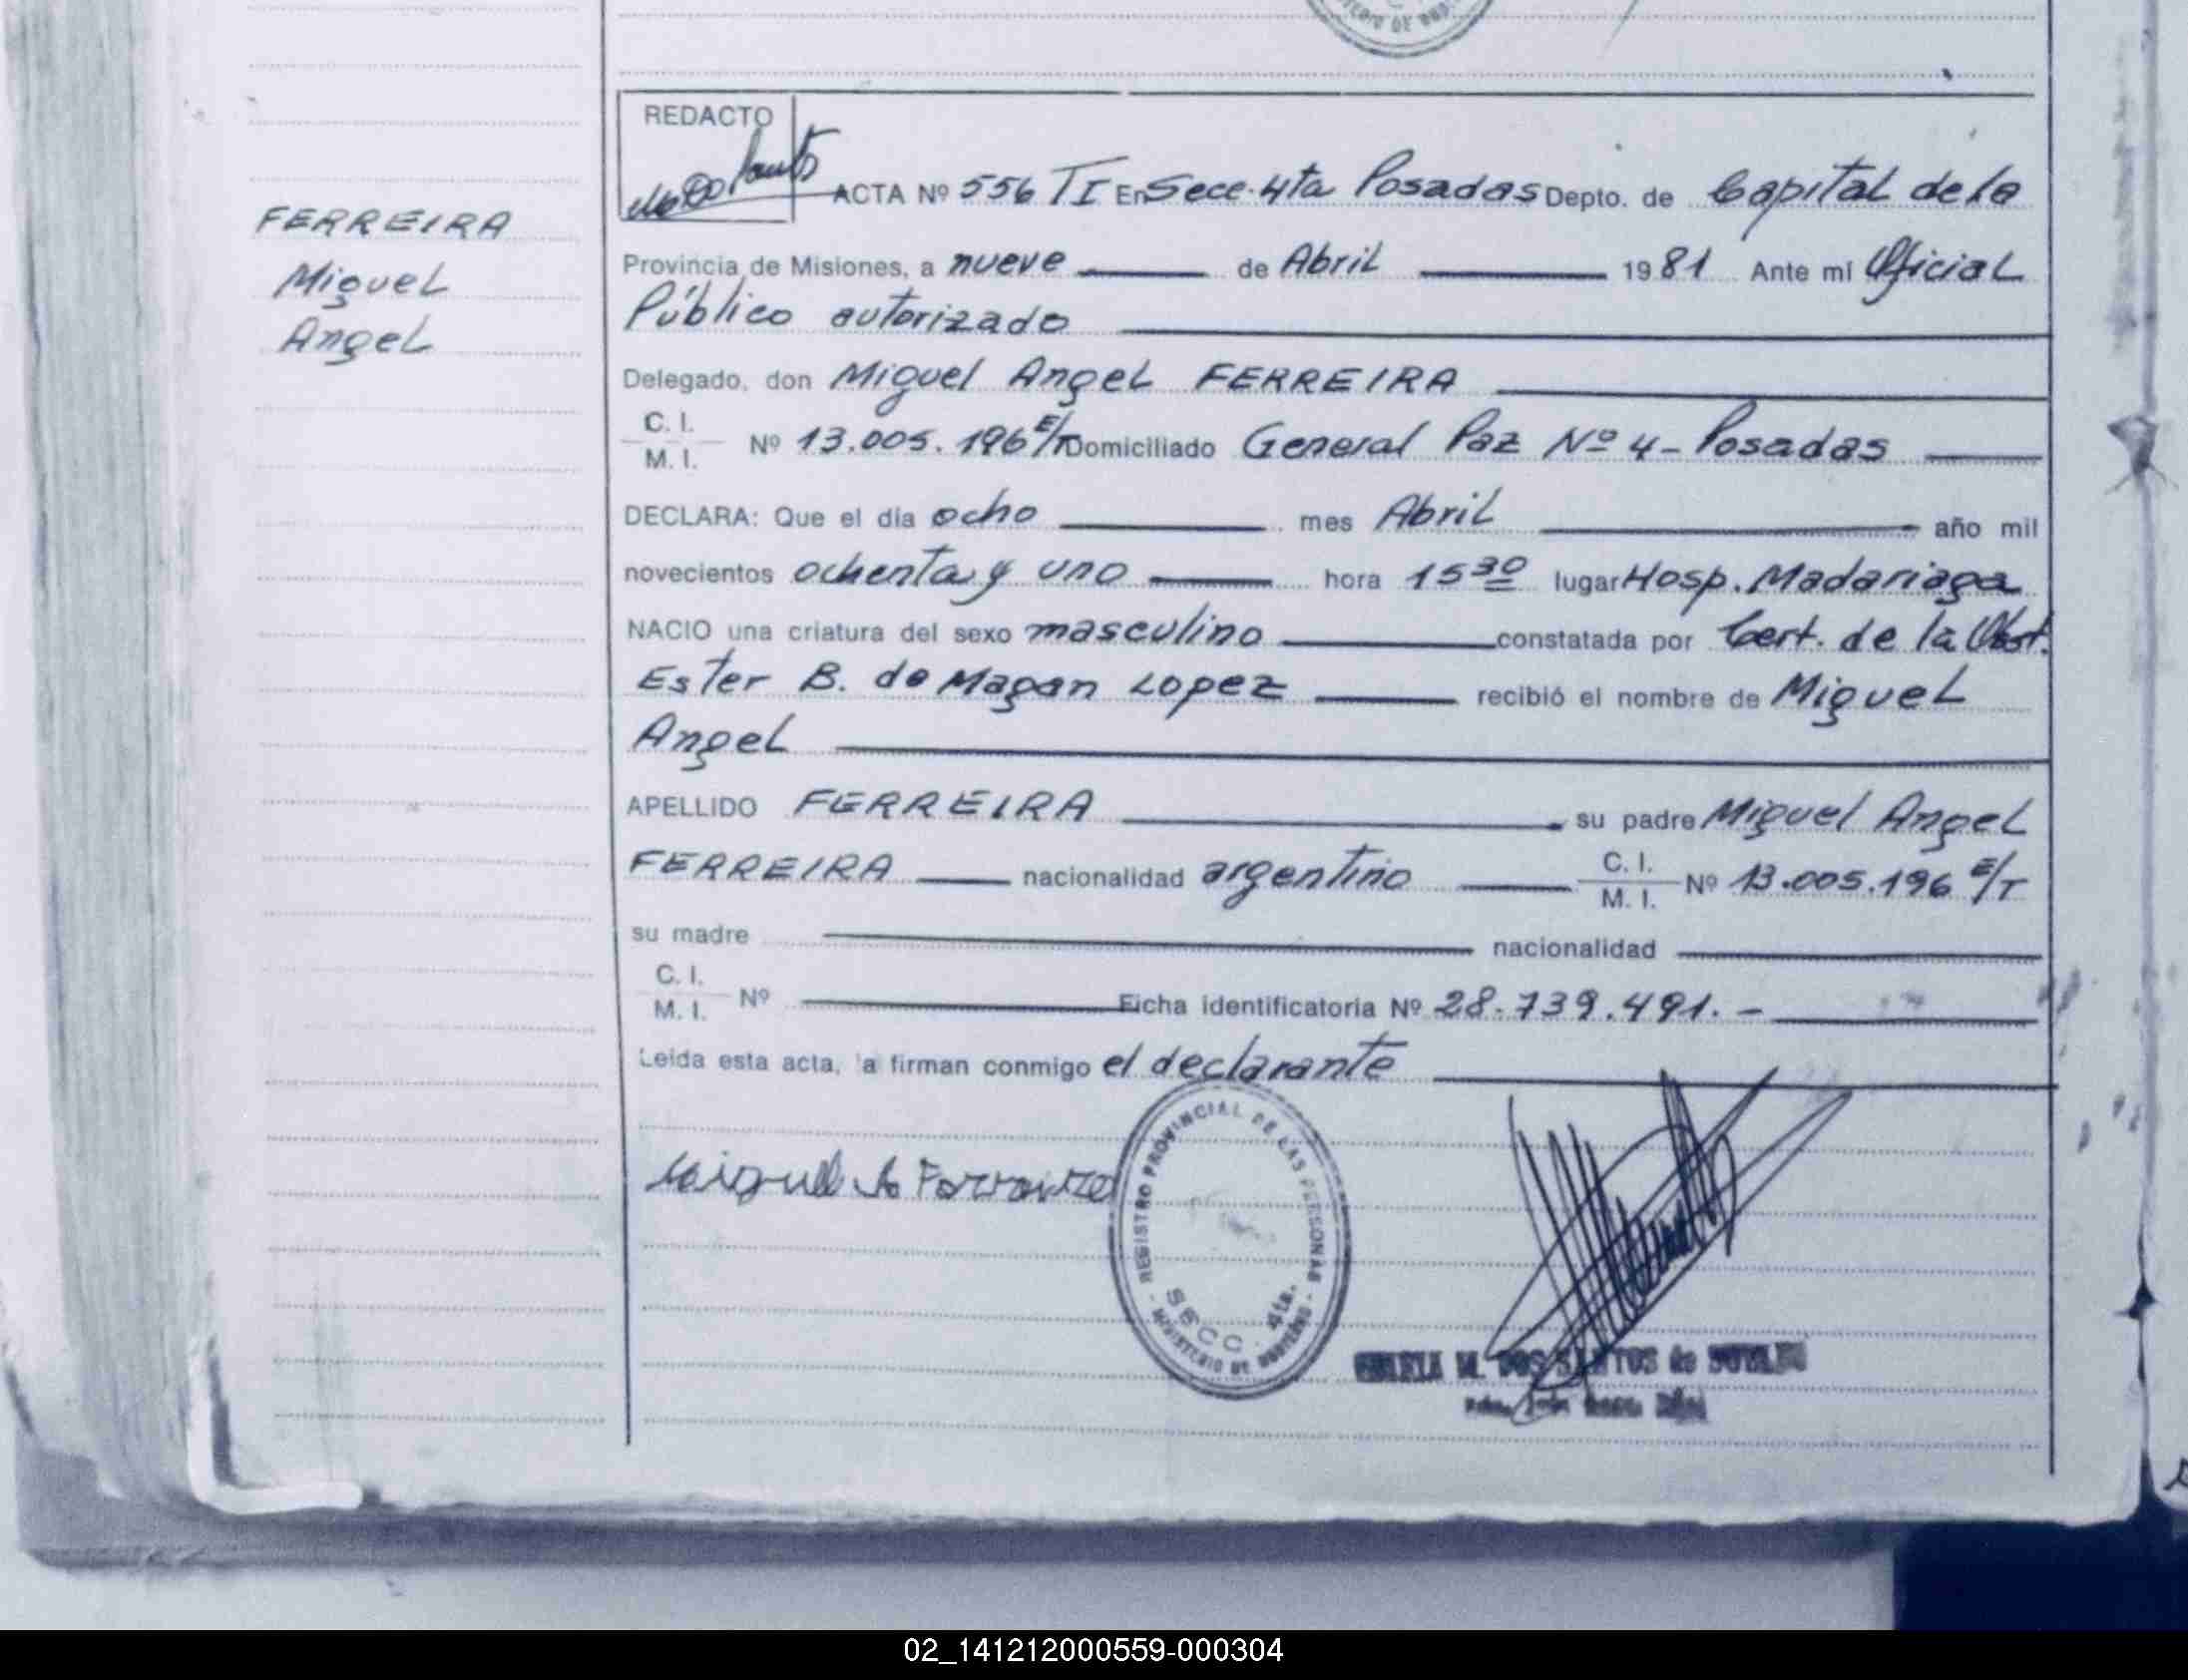 MINISTERIO DE GOBIERNO
REDACTO
ACTA Nº 556 TI En Secc. 4ta Posadas Depto. de Capital de la
FERREIRA
Miguel
Angel
Provincia de Misiones, a nueve de Abril 1981 Ante mí Oficial
Público autorizado
Delegado, don Miguel Angel FERREIRA
C. I.
M. I. Nº 13.005.196 E/T Domiciliado General Paz Nº 4 - Posadas
DECLARA: Que el día ocho mes Abril año mil
novecientos ochenta y uno hora 15 30 lugar Hosp. Madariaga
NACIO una criatura del sexo masculino constatada por Cert. de la Obst.
Ester B. de Magan Lopez recibió el nombre de Miguel
Angel
APELLIDO FERREIRA su padre Miguel Angel
FERREIRA nacionalidad argentino C. I. M. I. Nº 13.005.196 E/T
su madre nacionalidad
C. I.
M. I. Nº Ficha identificatoria Nº 28.739.491.-
Leída esta acta, la firman conmigo el declarante
Miguel A Ferreira
REGISTRO PROVINCIAL DE LAS PERSONAS
SECC. 4ta.
- MINISTERIO DE GOBIERNO -
M. DOS SANTOS de
02_141212000559-000304